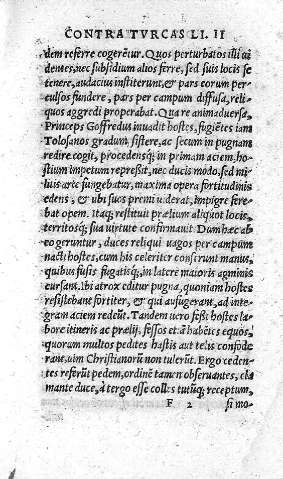 CONTRA TVRCAS LI. II
dem referre cogeretur. Quos perturbatos illi ui
dentes, nec subsidium alios ferre, sed suis locis se
tenere, audacius institerunt, & pars eorum per
culsos fundere, pars per campum diffusa, reli-
quos aggredi properabat. Qua re animaduersa,
Princeps Goffredus inuadit hostes, fugiẽtes iam
Tolosanos gradum sistere, ac secum in pugnam
redire cogit, procedensq; in primam aciem, ho-
stium impetum repreßit, nec ducis modo, sed mi
litis uice fungebatur, maxima opera fortitudinis
edens, & ubi suos premi uiderat, impigre fere-
bat opem. Itaq; restituit prælium aliquot locis,
territosq; sua uirtute confirmauit. Dum hæc ab
eo geruntur, duces reliqui uagos per campum
nacti hostes, cum his celeriter conserunt manus,
quibus fusis fugatisq;, in latere maioris agminis
cursant. Ibi atrox editur pugna, quoniam hostes
resistebant fortiter, & qui aufugerant, ad inte-
gram aciem redeũt. Tandem uero feßi hostes la-
bore itineris ac prælij, fessos et iã habẽtes equos,
quorum multos pedites hastis aut telis confode
rant, uim Christianorũ non tulerũt. Ergo ceden-
tes referũt pedem, ordinẽ tamen obseruantes, cla
mante duce, à tergo esse colles tutũq; receptum,
F 2 si mo-